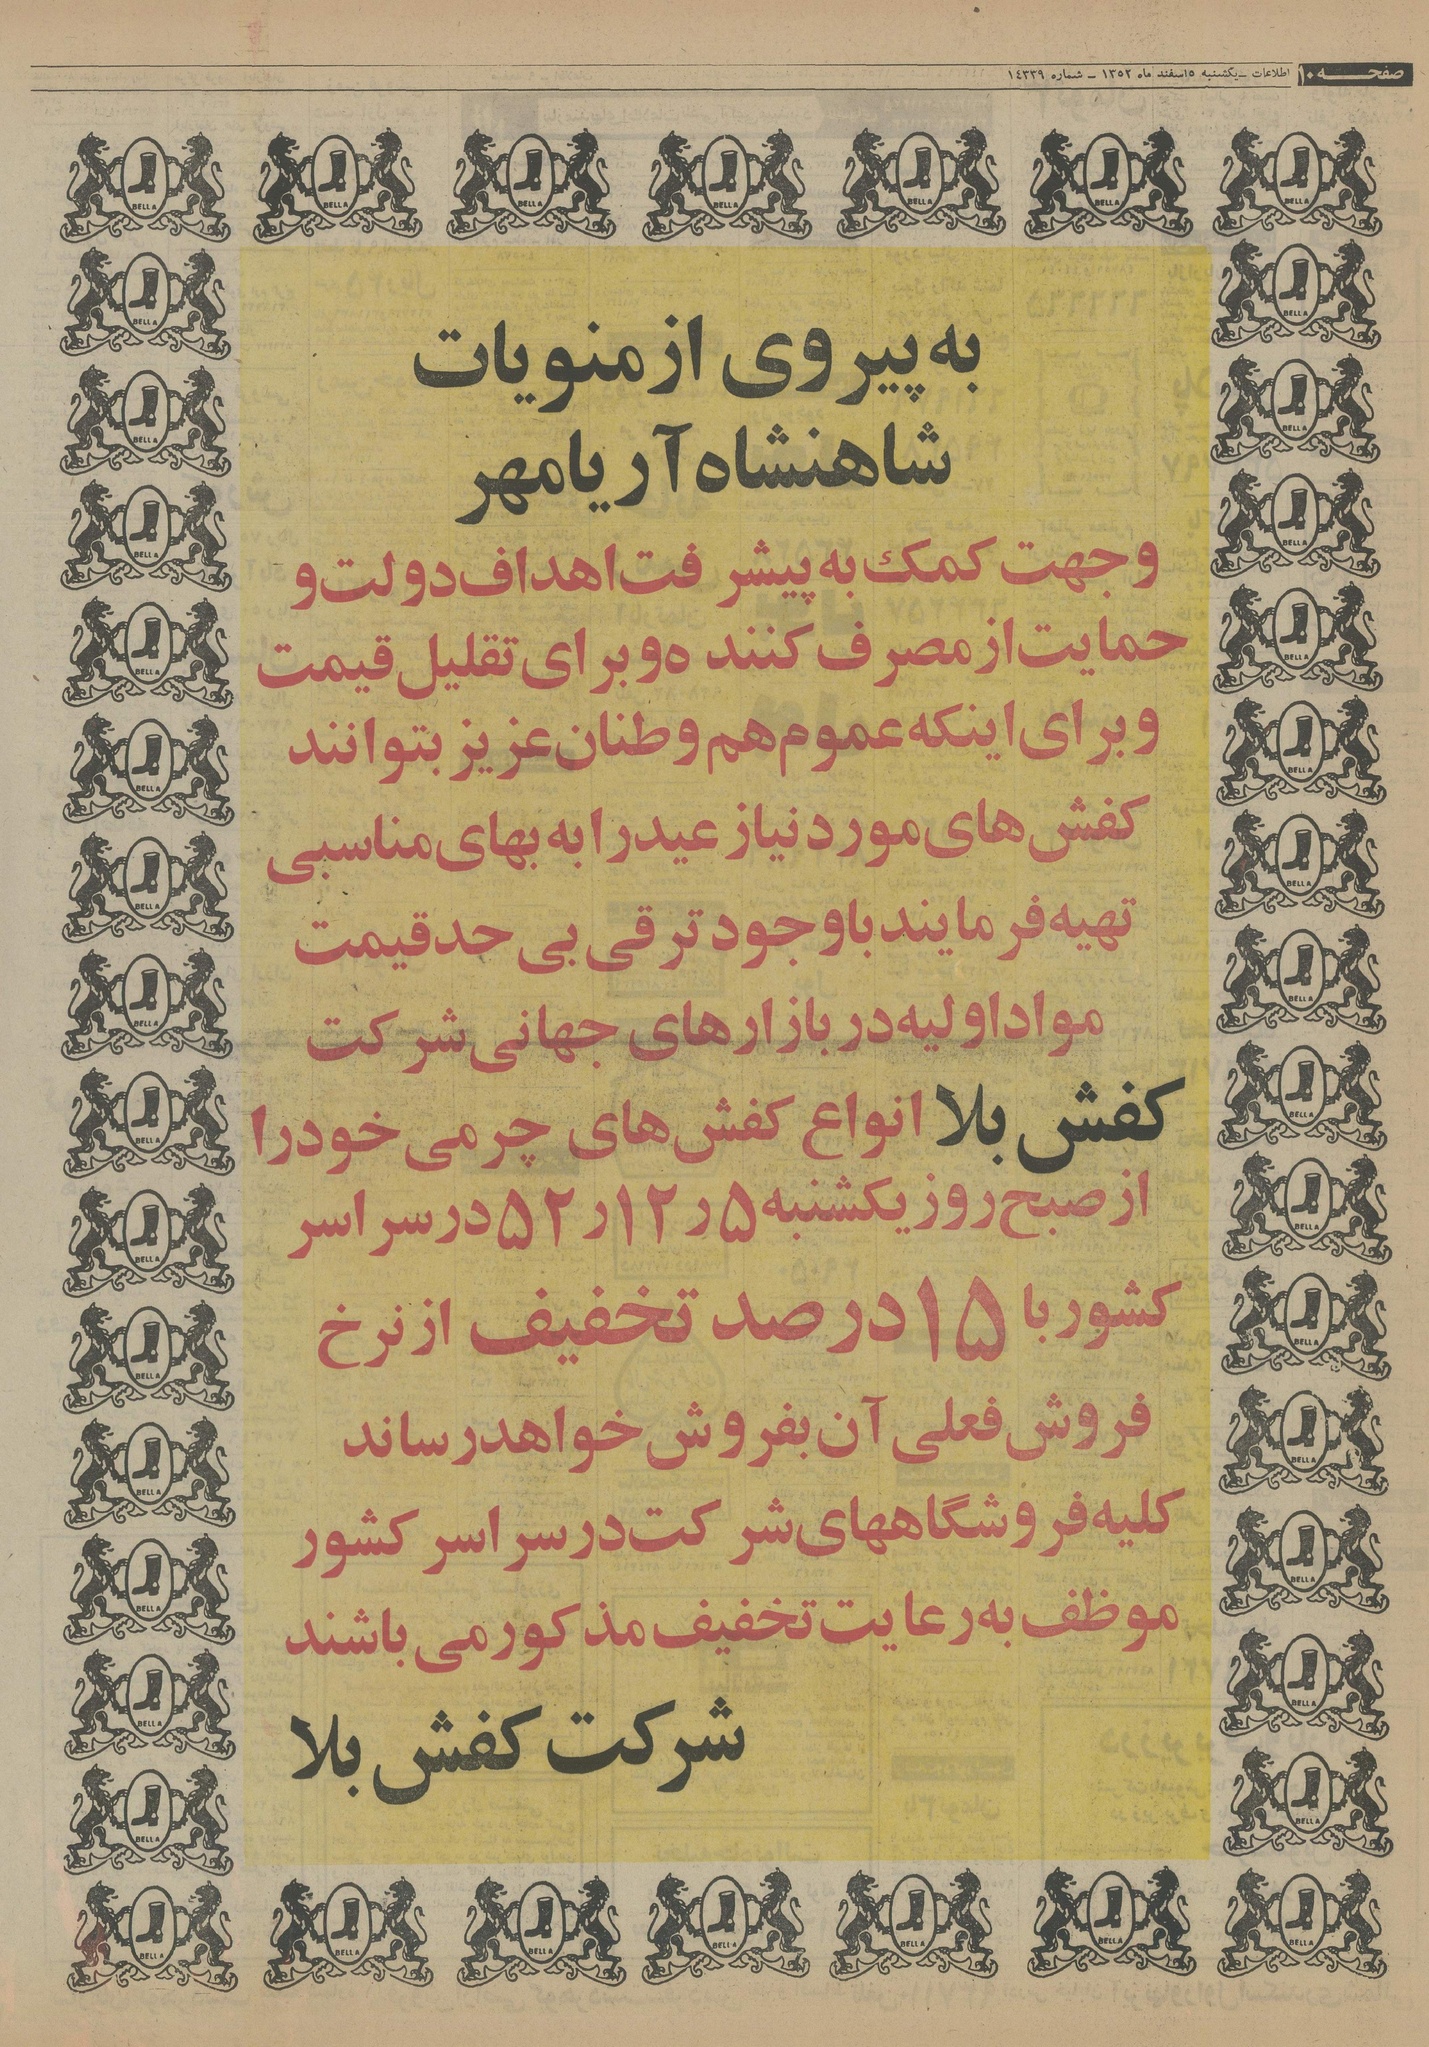 صفحه ۱۰
اطلاعات ـ یکشنبه ۵ اسفند ماه ۱۳۵۲ ـ شماره ۱۴۳۳۹
به پیروی از منویات
شاهنشاه آریامهر
و جهت کمک به پیشرفت اهداف دولت و
حمایت از مصرف کننده و برای تقلیل قیمت
و برای اینکه عموم هم وطنان عزیز بتوانند
کفش های مورد نیاز عید را به بهای مناسبی
تهیه فرمایند با وجود ترقی بی حد قیمت
مواد اولیه در بازارهای جهانی شرکت
کفش بلا انواع کفش های چرمی خود را
از صبح روز یکشنبه ۵ر۱۲ر۵۲ در سراسر
کشور با ۱۵ درصد تخفیف از نرخ
فروش فعلی آن بفروش خواهد رساند
کلیه فروشگاههای شرکت در سراسر کشور
موظف به رعایت تخفیف مذکور می باشند
شرکت کفش بلا
BELLA